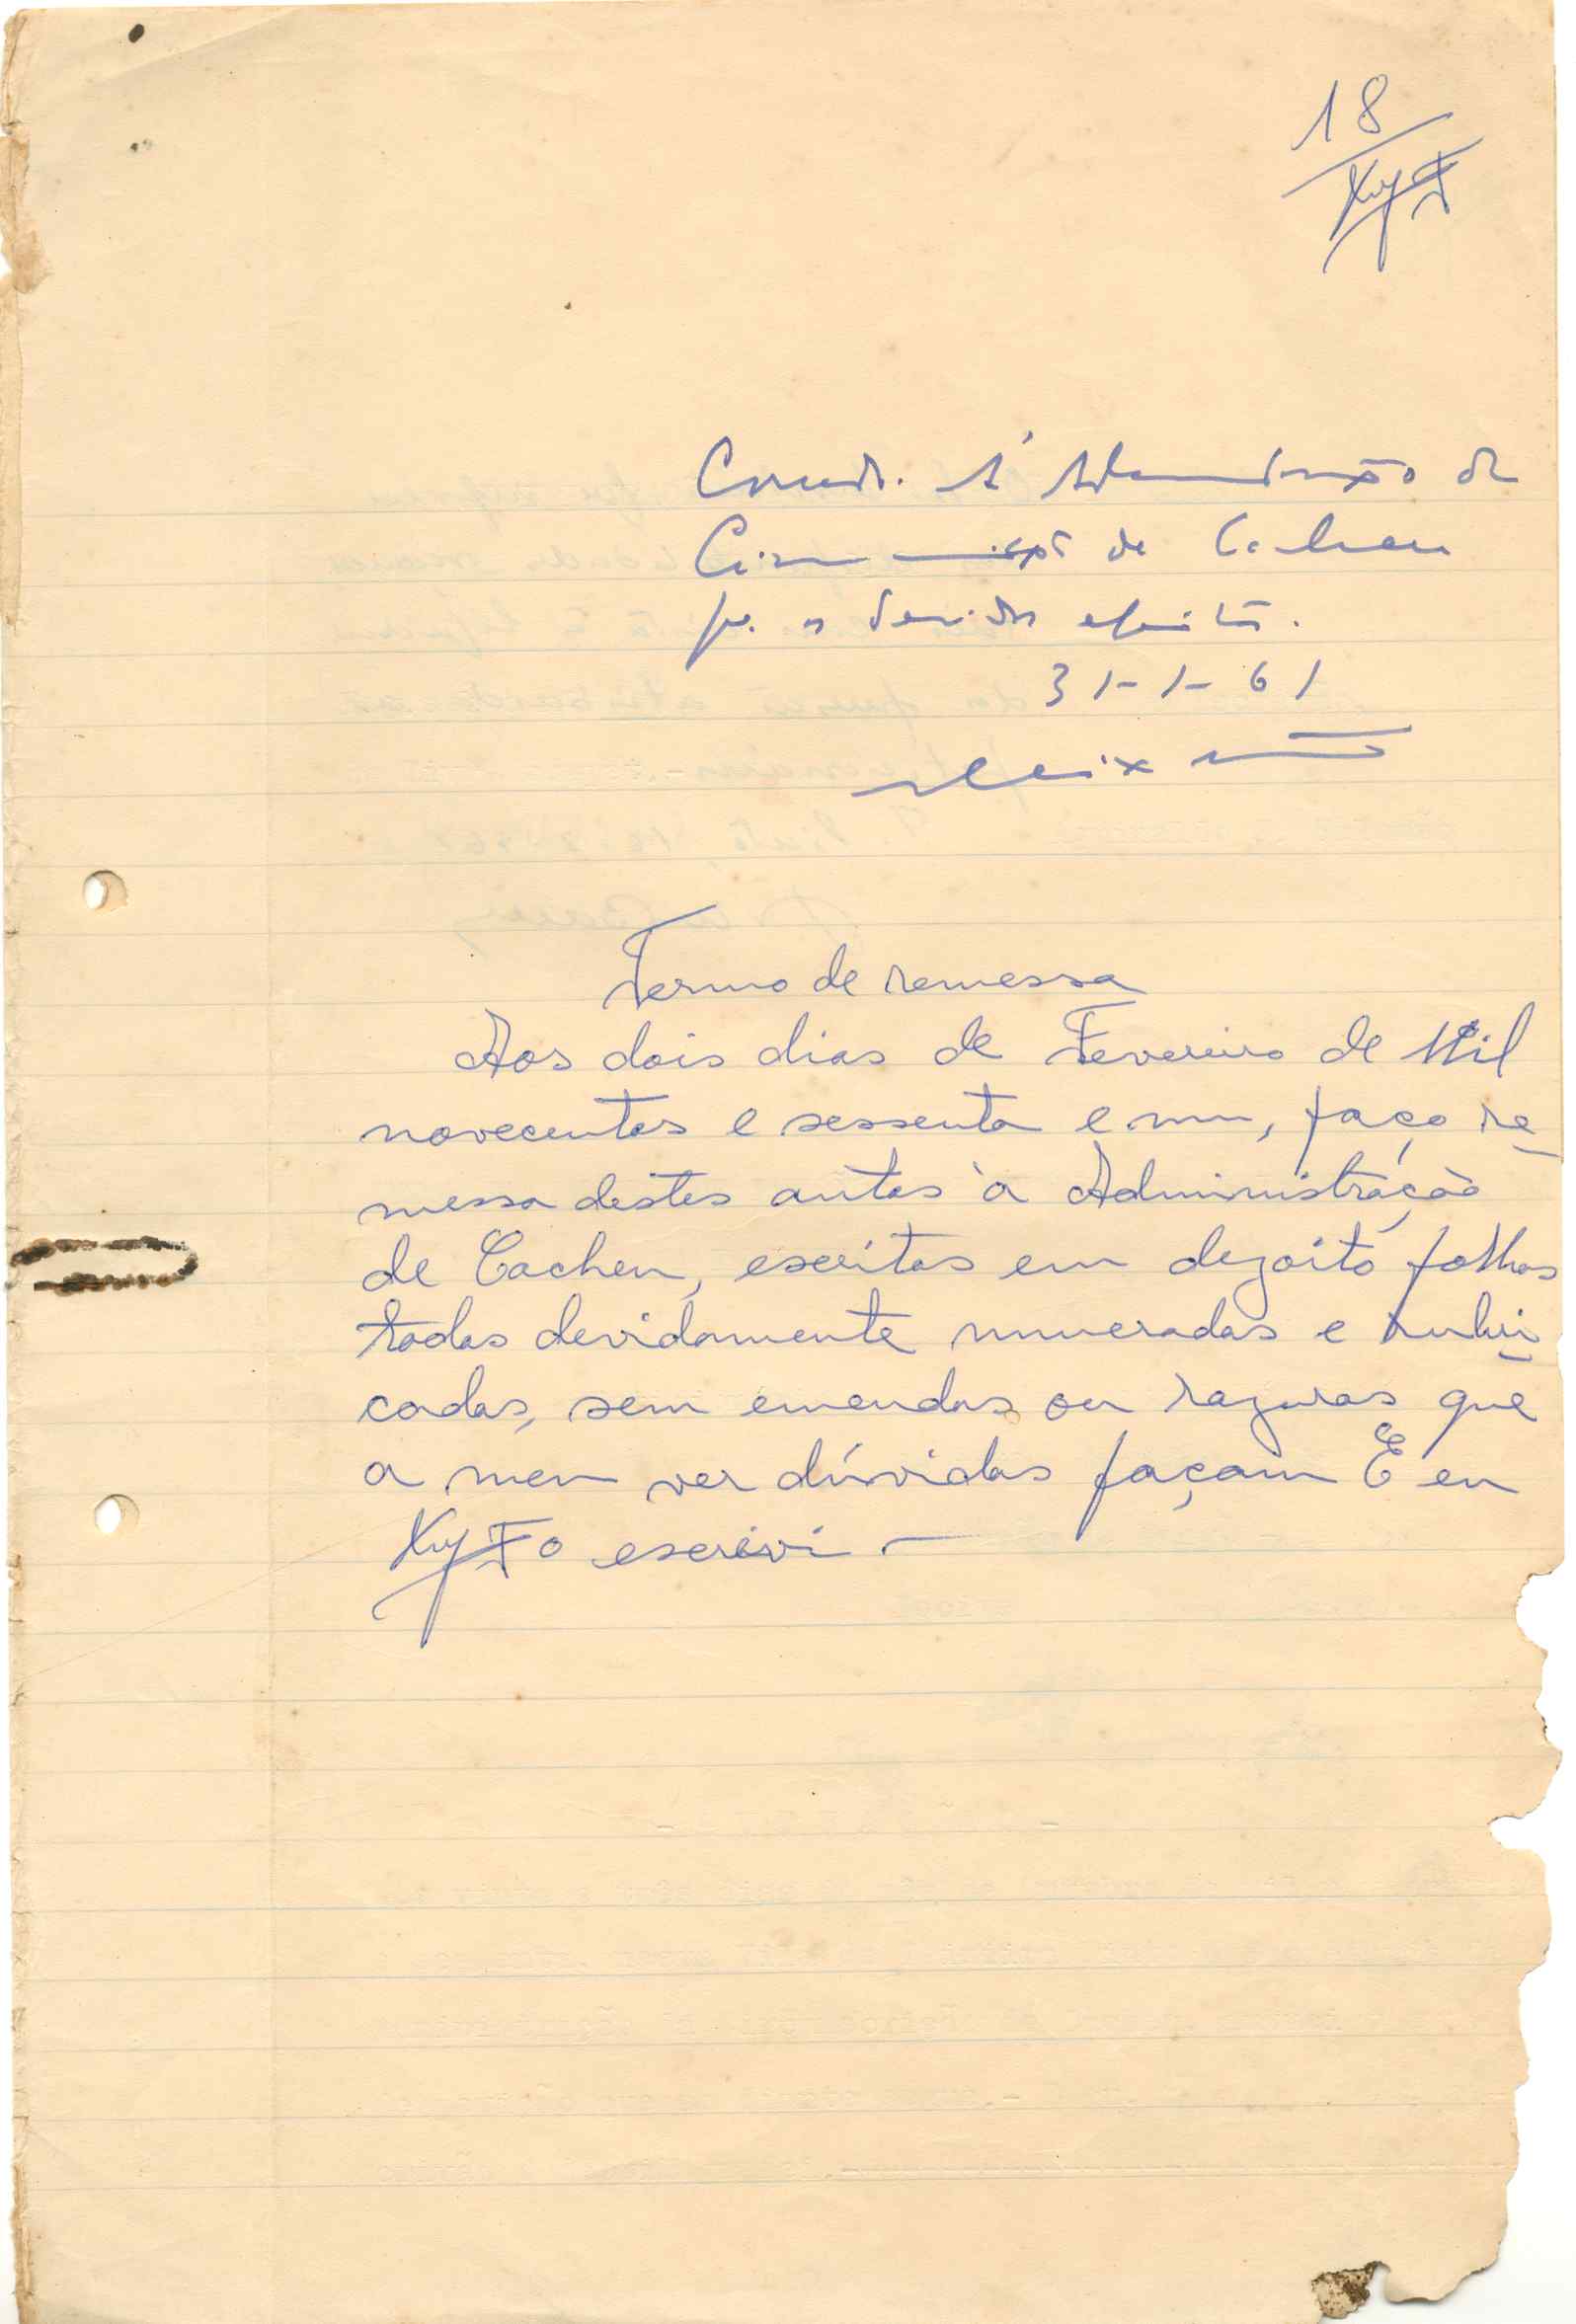 18
à Administração de
Circunscrição de Cacheu
pª. os devidos efeitos.
31-1-61
Termo de remessa
Aos dois dias de Fevereiro de Mil
novecentos e sessenta e um, faço re-
messa destes autos à Administração
de Cacheu, escritos em dezoito folhas
todas devidamente numeradas e rubri-
cadas, sem emendas ou razuras que
a meu ver dúvidas façam E eu
o escrevi —